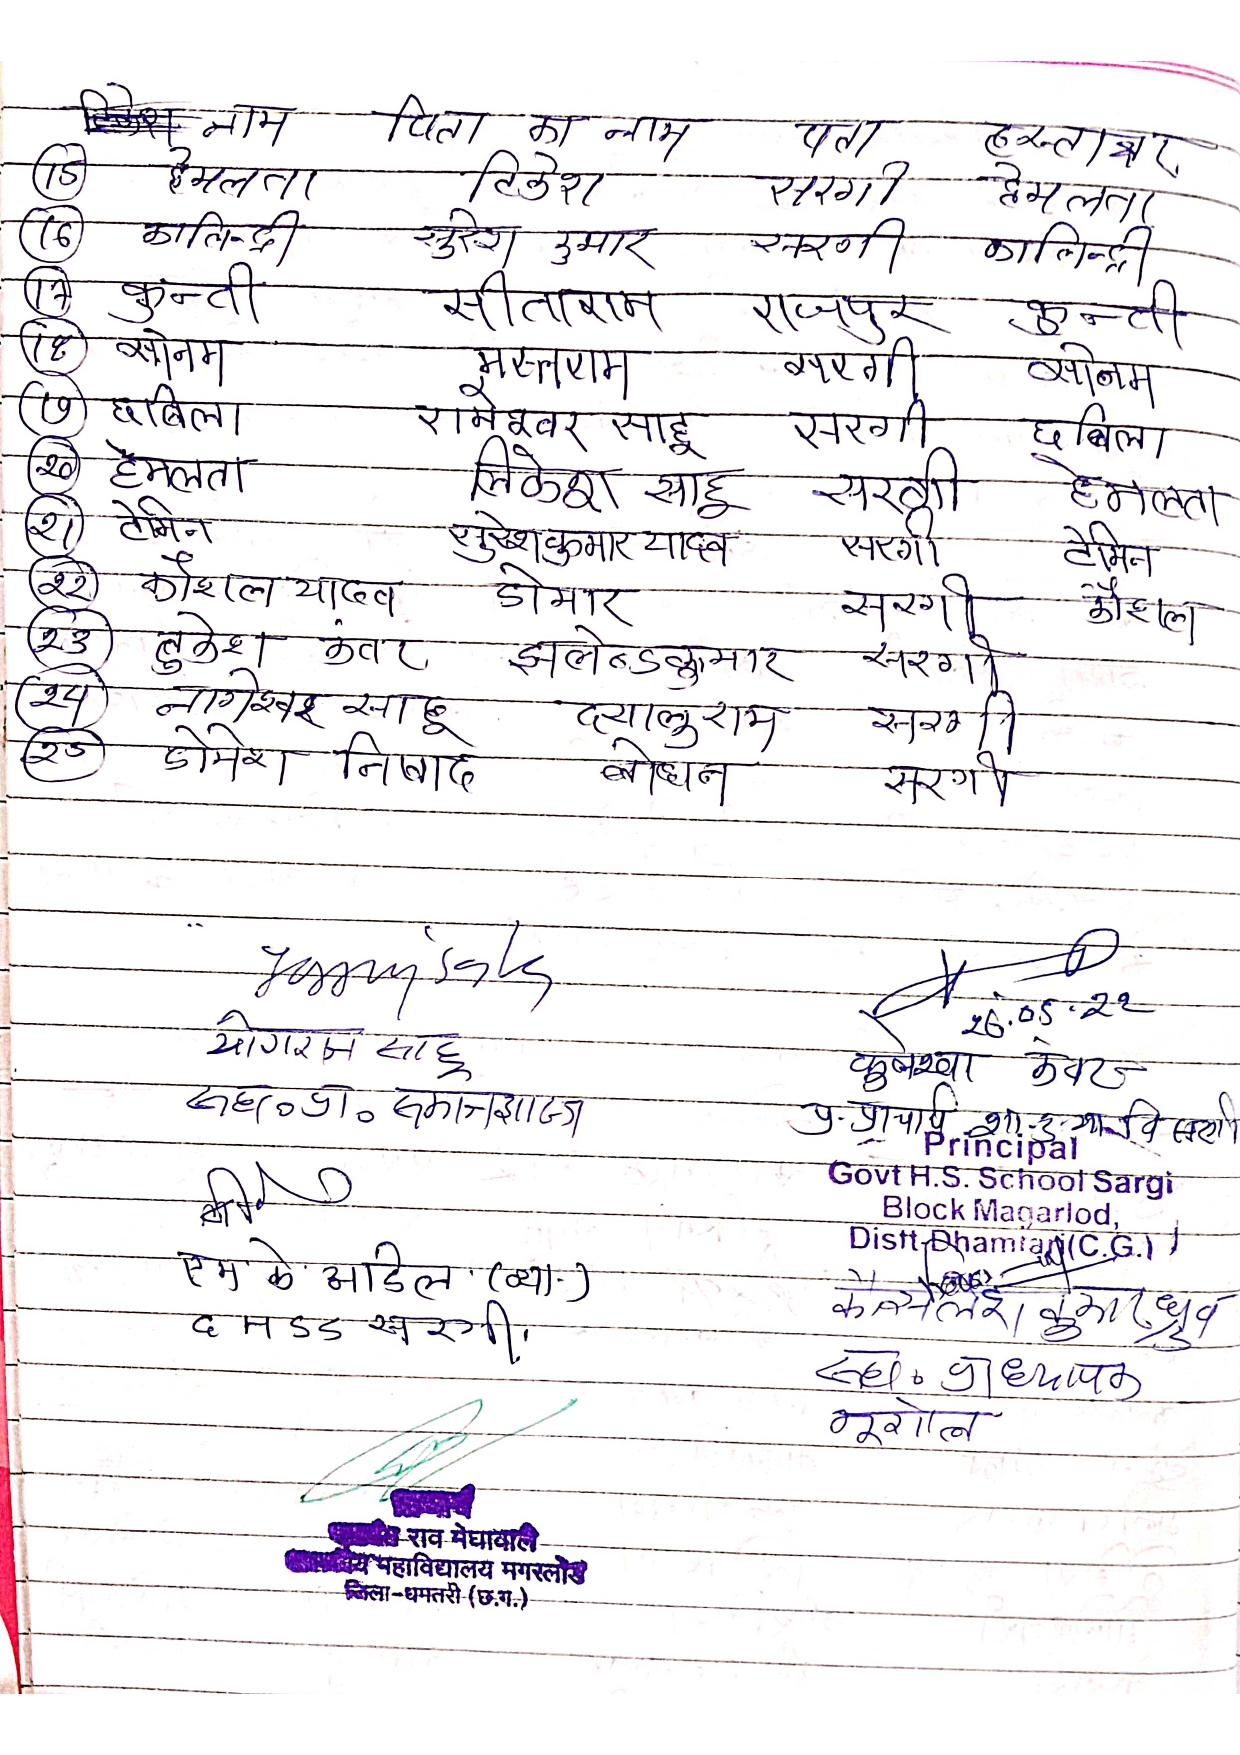 नाम पिता का नाम पता हस्ताक्षर
15 हेमलता टिकेश सरगी हेमलता
16 कालिन्द्री सुरेश कुमार सरगी कालिन्द्री
17 कुन्ती सीताराम राजपुर कुन्ती
18 सोनम मुस्तराम सरगी सोनम
19 छबिला रामेश्वर साहू सरगी छबिला
२० हेमलता साहू सरगी हेमलता
२1 टेमिन सुरेशकुमार यादव सरगी टेमिन
२२ कौशल यादव डोमार सरगी कौशल
२३ लुकेश कंवर सरगी
२४ नागेश्वर साहू दयालुराम सरगी
२5 डोमेश निषाद बोधन सरगी
26.05.22
योगराज साहू
सहा. प्रा. समाजशास्त्र
प्र. प्राचार्य
Principal
Govt H.S. School Sargi
Block Magarlod,
Distt-Dhamtari (C.G.)
एम के आडिल (व्या.)
सरगी.
कुमार ध्रुव
सहा. प्राध्यापक
भूगोल
राव मेघावाले
महाविद्यालय मगरलोड
जिला-धमतरी (छ.ग.)